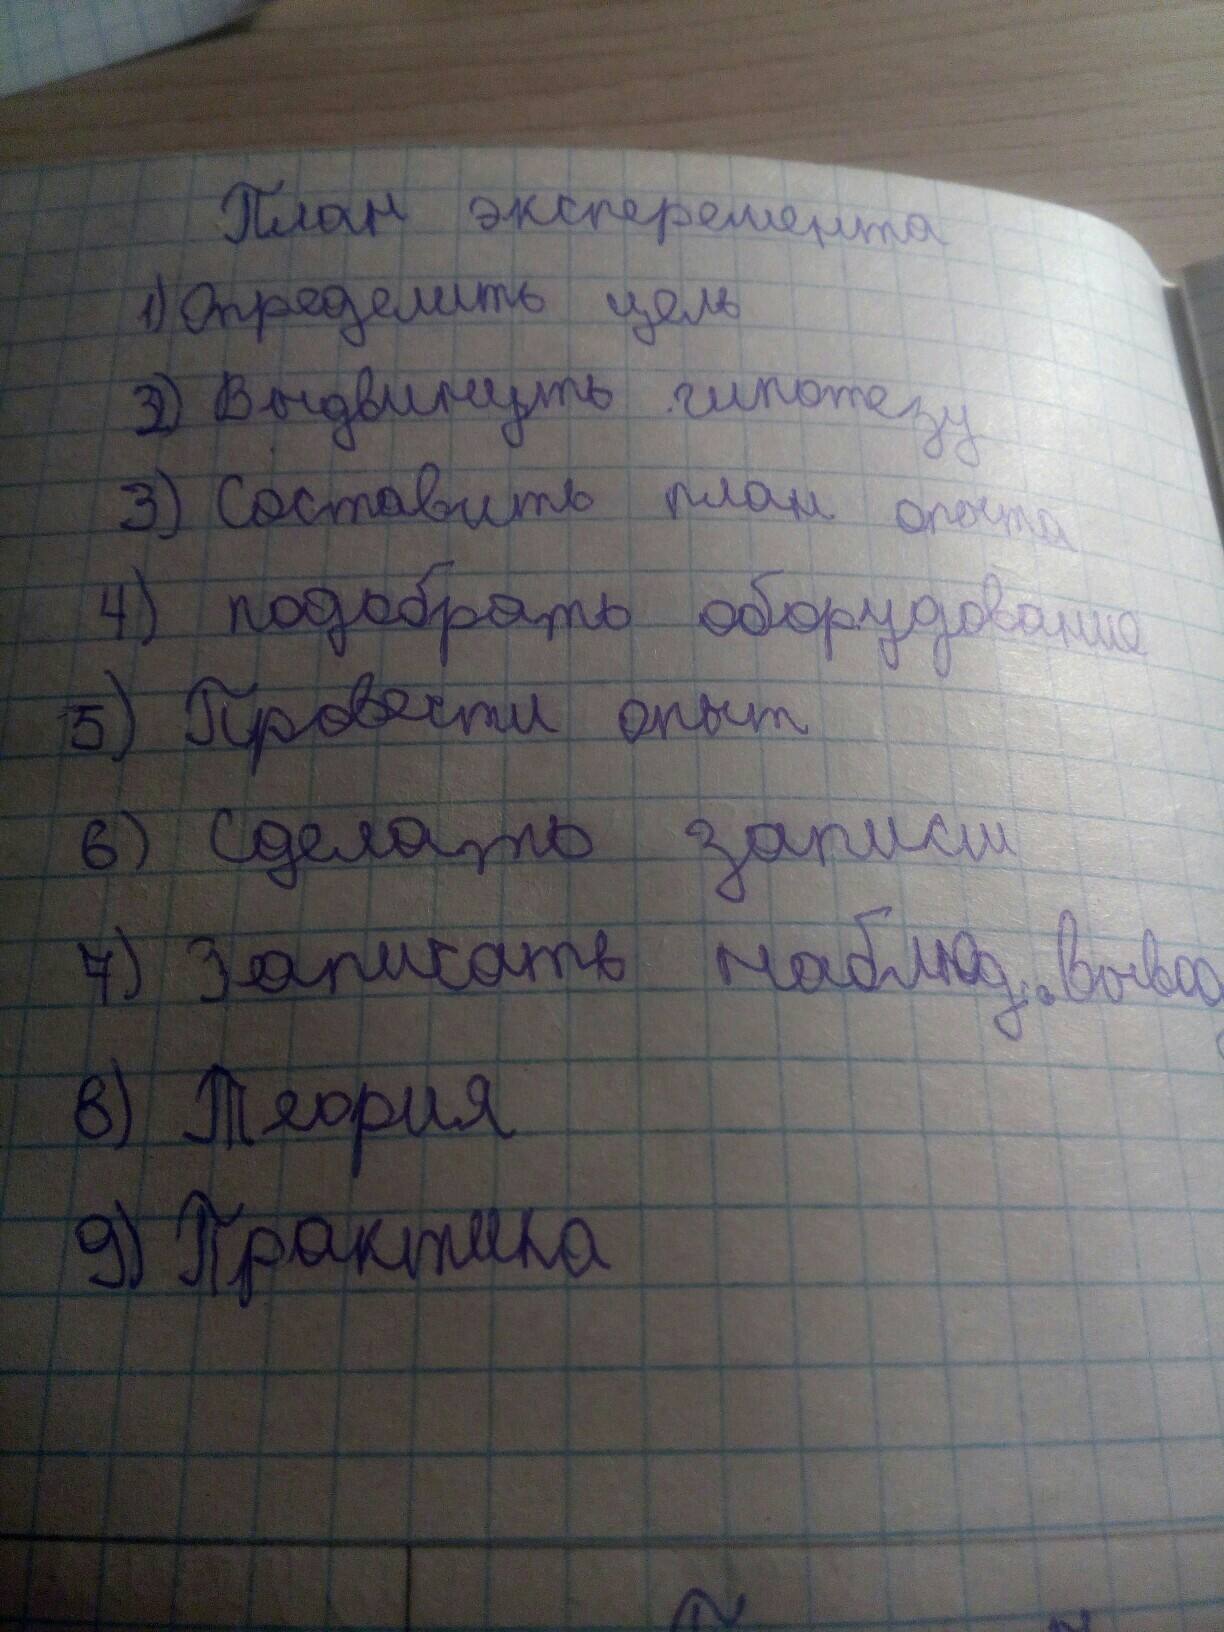 План эксперемента
1) Определить цель
2) Выдвинуть гипотезу
3) Составить план опыта
4) подобрать оборудование
5) Провести опыт
6) Сделать записи
7) Записать наблюд. Вывод
8) Теория
9) Практика